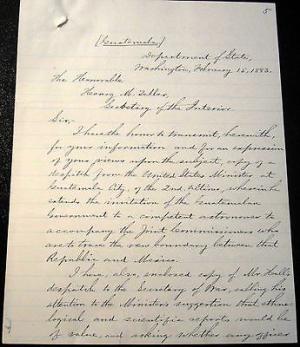 5
[Guatemala]
Department of State,
Washington, February 15, 1883.
The Honorable
Henry M. Teller,
Secretary of the Interior.
Sir:-
I have the honor to transmit, herewith,
for your information and for an expression
of your views upon the subject, copy of a
despatch from the United States Minister at
Guatemala City, of the 2nd. Ultimo, wherein he
extends the invitation of the Guatemalan
Government to a competent astronomer to
accompany the Joint Commissioners who
are to trace the new boundary between that
Republic and Mexico.
I have, also, enclosed copy of Mr. Hall's
despatch to the Secretary of War, calling his
attention to the Minister's suggestion that ethno-
logical and scientific reports would be
of value, and asking whether any officer